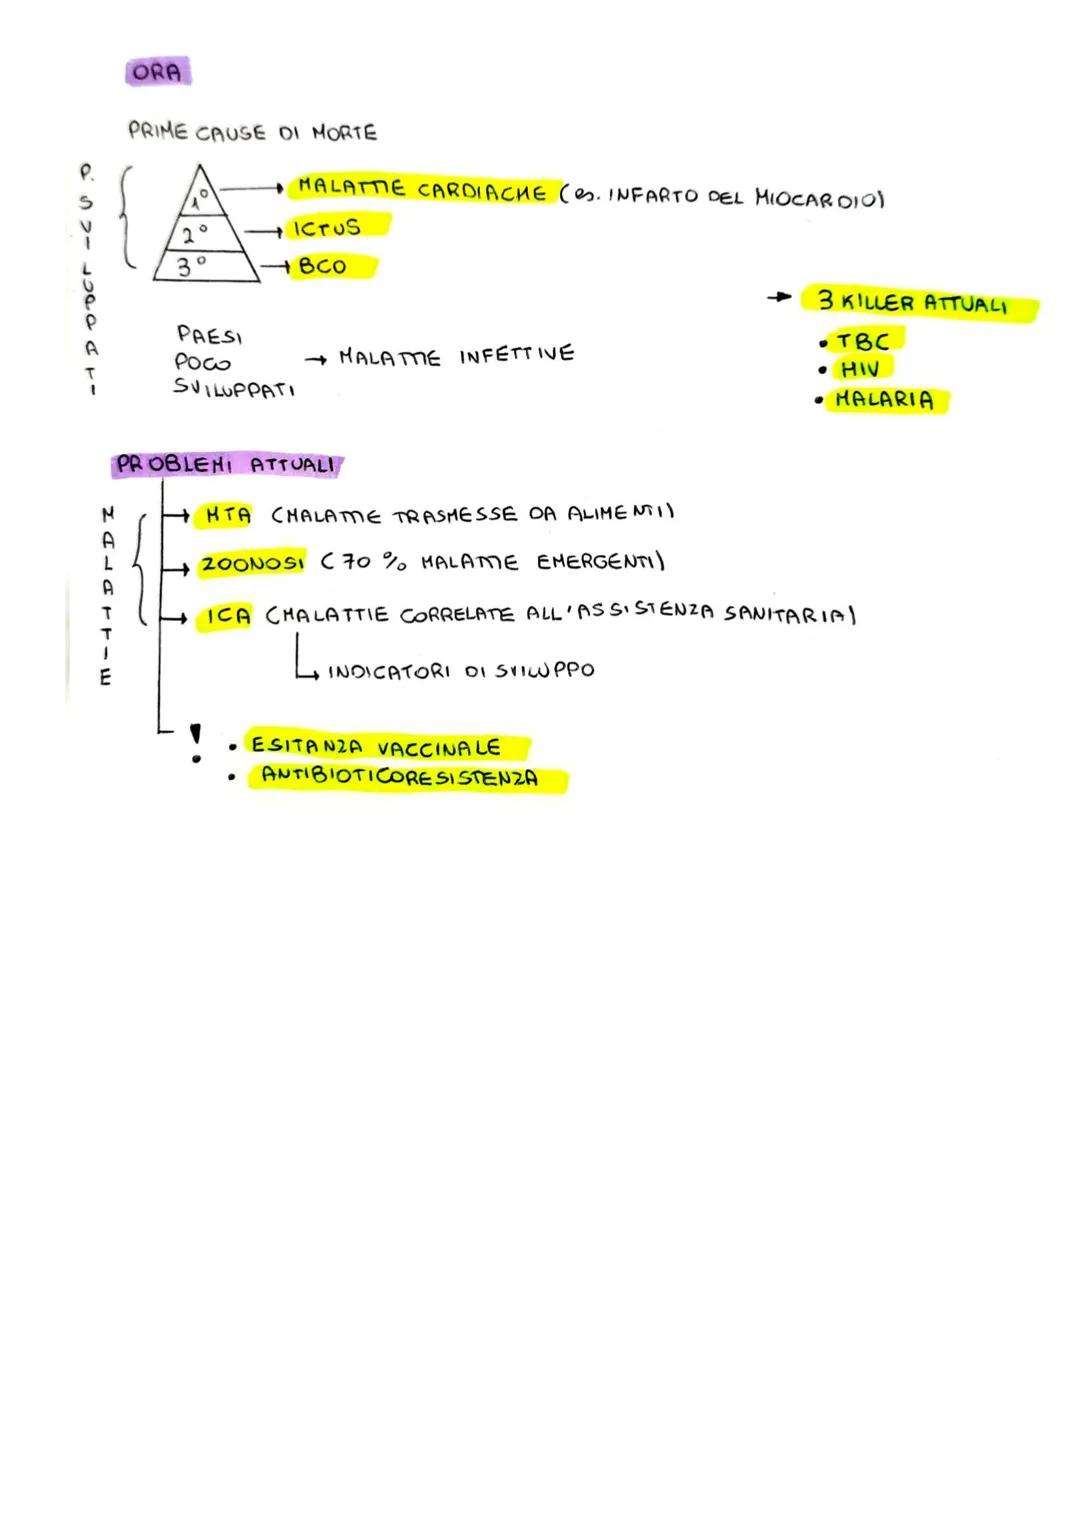 ORA
PRIME CAUSE DI MORTE
P. SVILUPPATI
1° MALATTIE CARDIACHE (es. INFARTO DEL MIOCARDIO)
2° ICTUS
3° BCO
PAESI
POCO
SVILUPPATI
→ MALATTIE INFETTIVE
→ 3 KILLER ATTUALI
• TBC
• HIV
• MALARIA
PROBLEMI ATTUALI
MALATTIE
→ MTA (MALATTIE TRASMESSE DA ALIMENTI)
→ ZOONOSI (70 % MALATTIE EMERGENTI)
→ ICA (MALATTIE CORRELATE ALL'ASSISTENZA SANITARIA)
INDICATORI DI SVILUPPO
! • ESITANZA VACCINALE
• ANTIBIOTICORESISTENZA